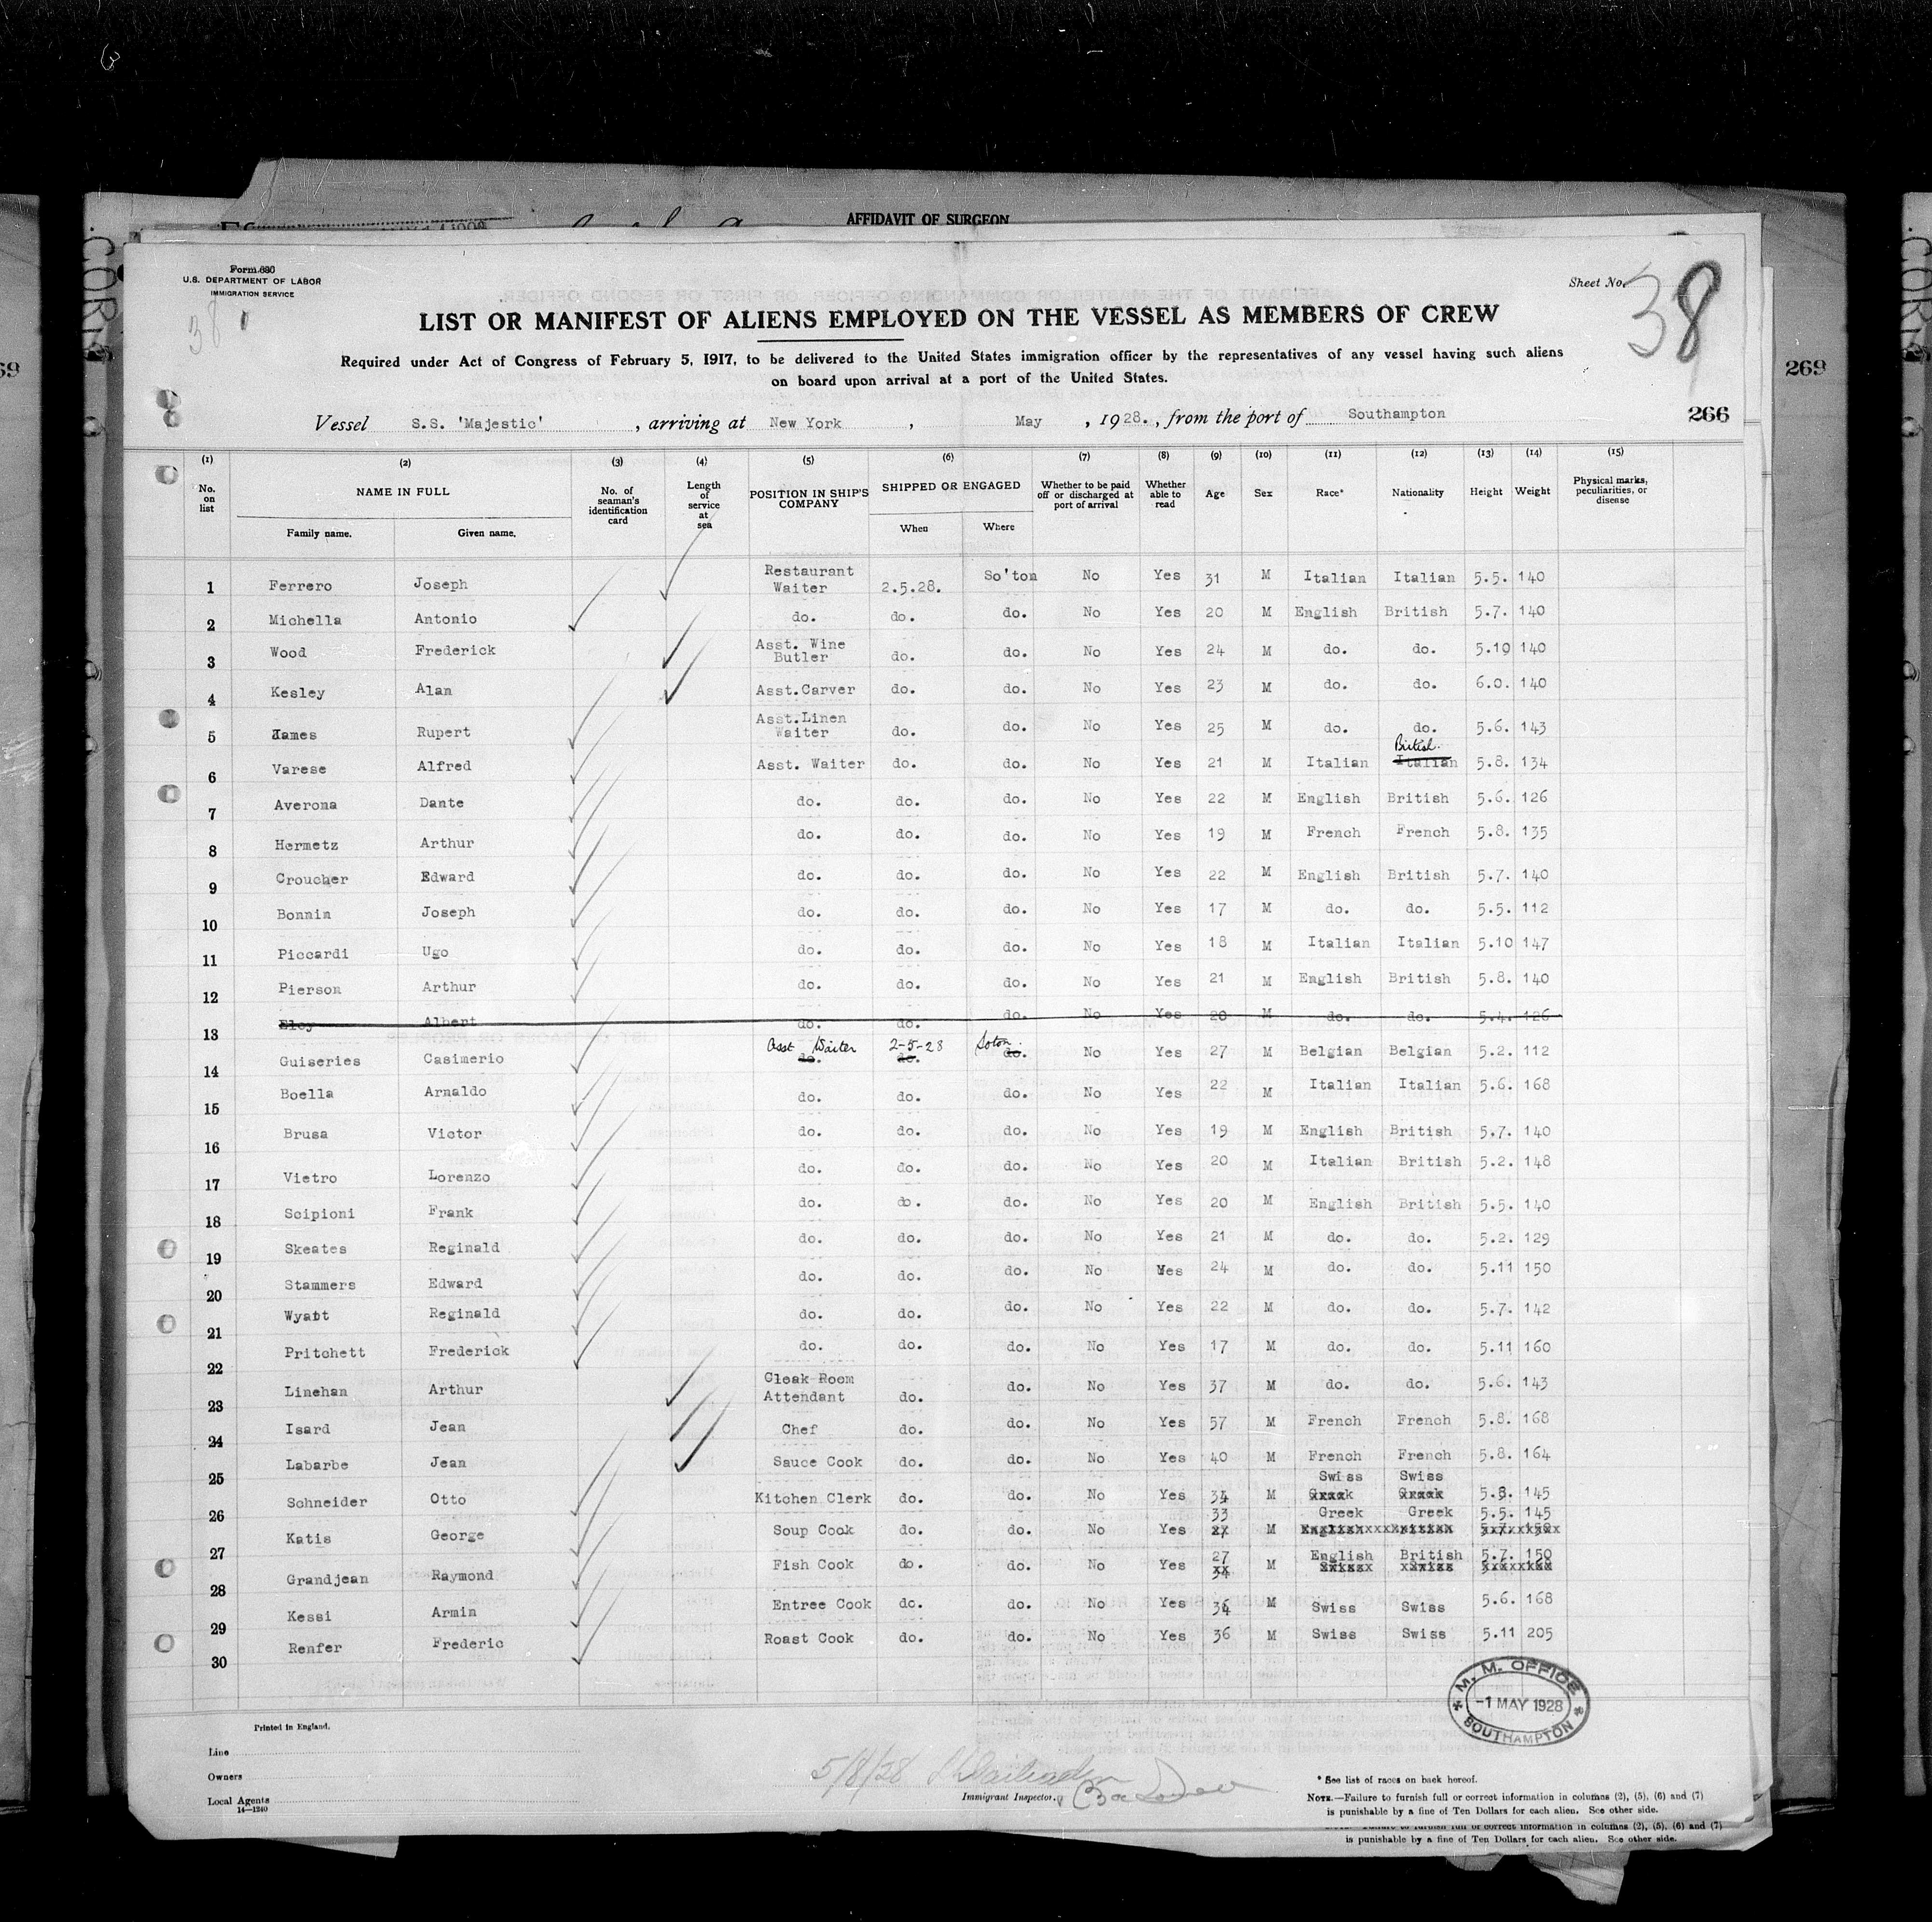 AFFIDAVIT OF SURGEON
Form 680
U.S. DEPARTMENT OF LABOR
IMMIGRATION SERVICE
Sheet No. 38
38
LIST OR MANIFEST OF ALIENS EMPLOYED ON THE VESSEL AS MEMBERS OF CREW
Required under Act of Congress of February 5, 1917, to be delivered to the United States immigration officer by the representatives of any vessel having such aliens
on board upon arrival at a port of the United States.
269
266
Vessel S.S. 'Majestic', arriving at New York, May, 1928., from the port of Southampton
(1) (2) (3) (4) (5) (6) (7) (8) (9) (10) (11) (12) (13) (14) (15)
No. on list NAME IN FULL Family name. Given name. No. of seaman's identification card Length of service at sea POSITION IN SHIP'S COMPANY SHIPPED OR ENGAGED When Where Whether to be paid off or discharged at port of arrival Whether able to read Age Sex Race* Nationality Height Weight Physical marks, peculiarities, or disease
1 Ferrero Joseph Restaurant Waiter 2.5.28. So'ton No Yes 31 M Italian Italian 5.5. 140
2 Michella Antonio do. do. do. No Yes 20 M English British 5.7. 140
3 Wood Frederick Asst. Wine Butler do. do. No Yes 24 M do. do. 5.10 140
4 Kesley Alan Asst.Carver do. do. No Yes 23 M do. do. 6.0. 140
5 James Rupert Asst.Linen Waiter do. do. No Yes 25 M do. do. 5.6. 143
6 Varese Alfred Asst. Waiter do. do. No Yes 21 M Italian British Italian 5.8. 134
7 Averona Dante do. do. do. No Yes 22 M English British 5.6. 126
8 Hermetz Arthur do. do. do. No Yes 19 M French French 5.8. 135
9 Croucher Edward do. do. do. No Yes 22 M English British 5.7. 140
10 Bonnin Joseph do. do. do. No Yes 17 M do. do. 5.5. 112
11 Piccardi Ugo do. do. do. No Yes 18 M Italian Italian 5.10 147
12 Pierson Arthur do. do. do. No Yes 21 M English British 5.8. 140
13 Eloy Albert do. do. do. No Yes 20 M do. do. 5.4. 126
14 Guiseries Casimerio Asst Waiter do. 2-5-28 do. Soton do. No Yes 27 M Belgian Belgian 5.2. 112
15 Boella Arnaldo do. do. do. No Yes 22 M Italian Italian 5.6. 168
16 Brusa Victor do. do. do. No Yes 19 M English British 5.7. 140
17 Vietro Lorenzo do. do. do. No Yes 20 M Italian British 5.2. 148
18 Scipioni Frank do. do. do. No Yes 20 M English British 5.5. 140
19 Skeates Reginald do. do. do. No Yes 21 M do. do. 5.2. 129
20 Stammers Edward do. do. do. No Yes 24 M do. do. 5.11 150
21 Wyatt Reginald do. do. do. No Yes 22 M do. do. 5.7. 142
22 Pritchett Frederick do. do. do. No Yes 17 M do. do. 5.11 160
23 Linehan Arthur Cloak Room Attendant do. do. No Yes 37 M do. do. 5.6. 143
24 Isard Jean Chef do. do. No Yes 57 M French French 5.8. 168
25 Labarbe Jean Sauce Cook do. do. No Yes 40 M French French 5.8. 164
26 Schneider Otto Kitchen Clerk do. do. No Yes 34 M Swiss Swiss 5.8. 145
27 Katis George Soup Cook do. do. No Yes 33 M Greek Greek 5.5. 145
28 Grandjean Raymond Fish Cook do. do. No Yes 27 M English British 5.7. 150
29 Kessi Armin Entree Cook do. do. No Yes 34 M Swiss Swiss 5.6. 168
30 Renfer Frederic Roast Cook do. do. No Yes 36 M Swiss Swiss 5.11 205
M. M. OFFICE
-1 MAY 1928
SOUTHAMPTON
Printed in England.
Line
Owners
Local Agents
14—1240
5/8/28
Immigrant Inspector.
* See list of races on back hereof.
NOTE.—Failure to furnish full or correct information in columns (2), (5), (6) and (7)
is punishable by a fine of Ten Dollars for each alien. See other side.
is punishable by a fine of Ten Dollars for each alien. See other side.